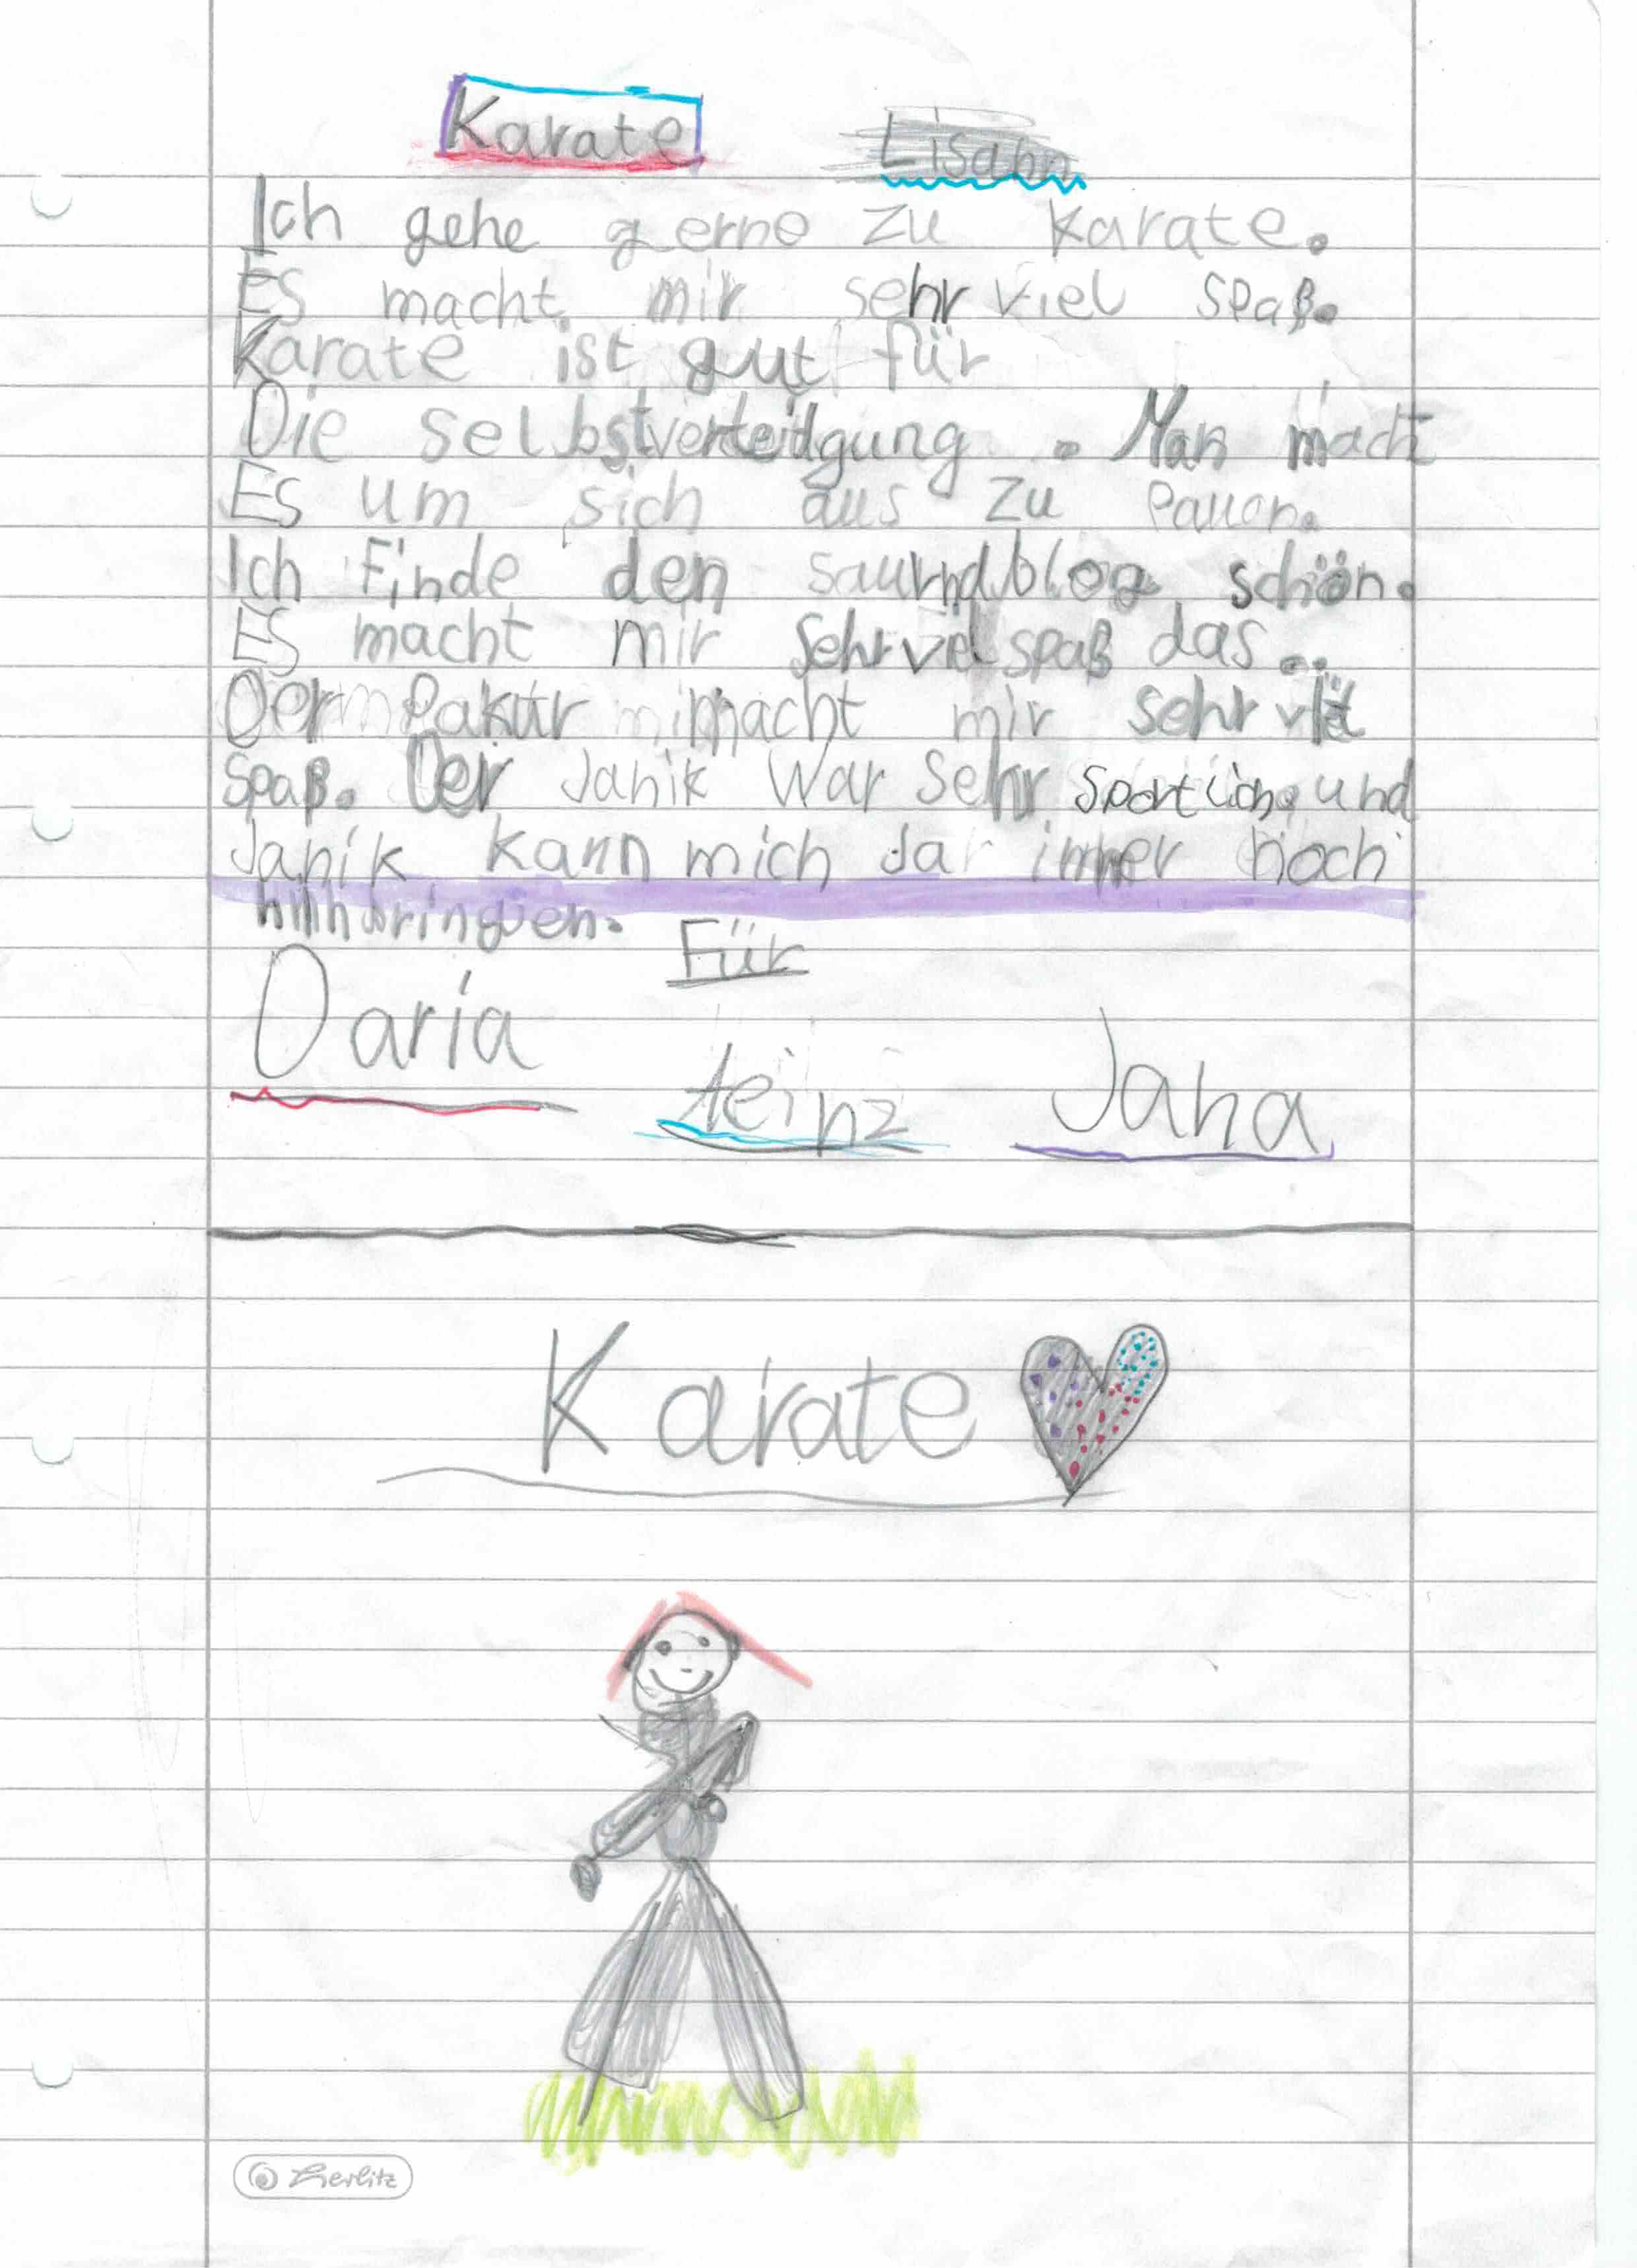 Karate Lisann
Ich gehe gerne zu Karate.
Es macht mir sehr viel spaß.
Karate ist gut für
Die selbstverteidgung . Man macht
Es um sich aus zu Pauern.
Ich Finde den saundblog schön.
Es macht mir Sehr viel spaß das...
Der Pakur macht mir sehr
Spaß. Der Janik War Sehr Sportlich und
Janik kann mich da immer noch
Für
Daria
Heinz Jana
Karate
Herlitz